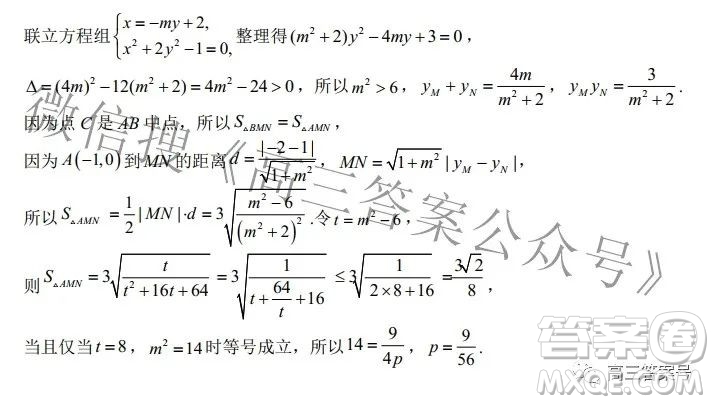 联立方程组{x=-my+2, x²+2y²-1=0, 整理得(m²+2)y²-4my+3=0，
Δ=(4m)²-12(m²+2)=4m²-24>0，所以m²>6，y_M+y_N=4m/(m²+2)，y_M y_N=3/(m²+2).
因为点C是AB中点，所以S_△BMN=S_△AMN，
因为A(-1,0)到MN的距离d=|-2-1|/√(1+m²)，MN=√(1+m²)|y_M-y_N|，
所以S_△AMN=1/2|MN|·d=3√((m²-6)/(m²+2)²).令t=m²-6，
则S_△AMN=3√(t/(t²+16t+64))=3√(1/(t+64/t+16))≤3√(1/(2×8+16))=3√2/8，
当且仅当t=8，m²=14时等号成立，所以14=9/(4p)，p=9/56.
微信搜《高三答案公众号》
答案圈
高三答案号
MXQE.COM